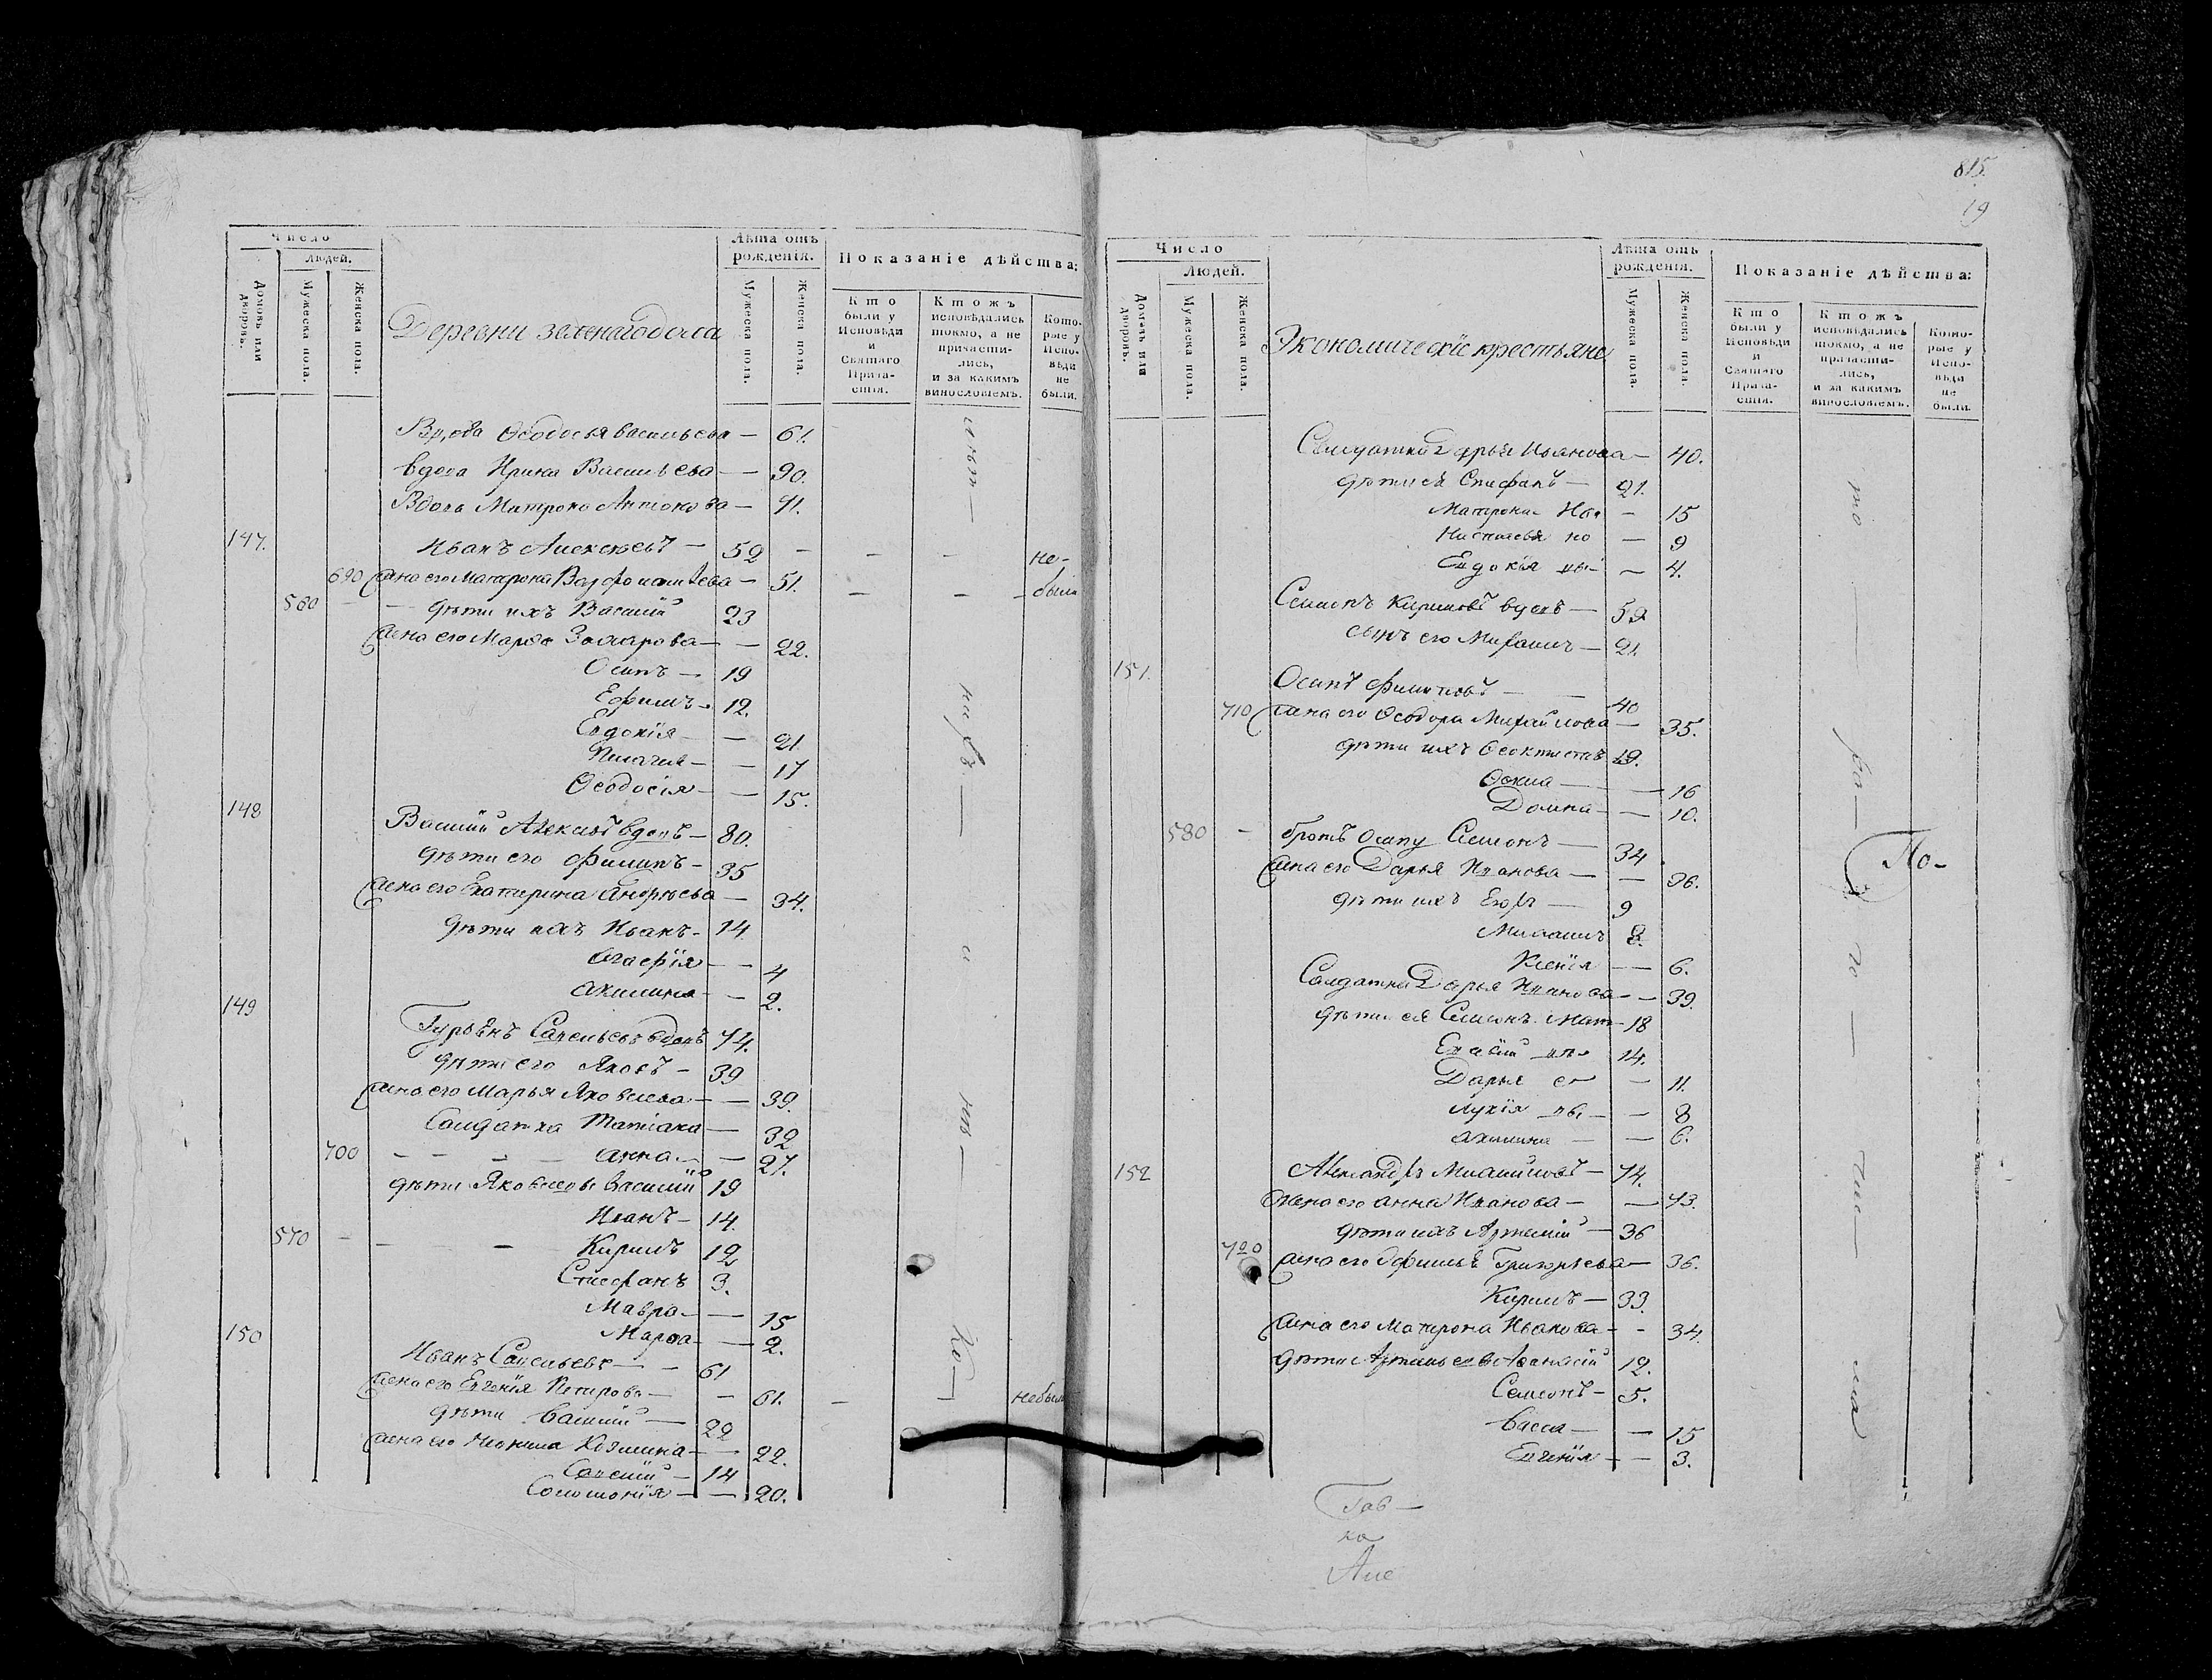 815.
19
Число
людей.
Домовъ или дворовъ.
Мужеска пола.
Женска пола.
Деревни
Лѣта отъ рожденія.
Мужеска пола.
Женска пола.
Показаніе дѣйства:
Кто были у Исповѣди и Святаго Причастія.
Ктожъ исповѣдались токмо, а не причастились, и за какимъ винословіемъ.
Которые у Исповѣди не были.
Ѳеодосья Васильева — 61.
вдова Ирина Васильева — 90.
Вдова Матрона Антонова — 71.
147. Иванъ Алексѣевъ — 52 не-
690 жена его Матрона — 51. были
560 дѣти ихъ Василій 23
жена его Марѳа Захарова — 22.
Осипъ — 19
Ефимъ — 12.
Евдокія — 21
Пелагия — 17
Ѳеодосія — 15.
148 Василій Алексѣевъ вдовъ — 80.
дѣти его Филипъ — 35
жена его Екатерина Андреева — 34.
дѣти ихъ Иванъ — 14.
Агафія — 4
Акилина — 2.
149 Гурьянъ Савельевъ вдовъ 74.
дѣти его Яковъ — 39
жена его Марья Яковлева — 39.
Солдатка Татіана — 32
700 Анна — 27.
дѣти Яковлевы Василій 19
Иванъ — 14.
570 Кирилъ 12
Стефанъ 3.
Мавра — 15
Марѳа — 2.
150 Иванъ Савельевъ — 61
жена его Евгенія Петрова — 61. небыли
дѣти Василій — 22
жена его Неонила Козмина — 22.
Савелий — 14
Соломонія — 20.
Число
Людей.
Домовъ или дворовъ.
Мужеска пола.
Женска пола.
Экономическіе крестьяне
Лѣта отъ рожденія.
Мужеска пола.
Женска пола.
Показаніе дѣйства:
Кто были у Исповѣди и Святаго Причастія.
Ктожъ исповѣдались токмо, а не причастились, и за какимъ винословіемъ.
Которые у Исповѣди не были.
Солдатка Дарья Иванова — 40.
дѣти ея Стефанъ — 21.
Матрона — 15
Настасья — 9
Евдокія — 4.
Семенъ Кириловъ вдовъ — 59
сынъ его Михаилъ — 21.
151. Осипъ Филиповъ — 40
710 жена его Ѳеодора Михайлова — 35.
дѣти ихъ Ѳеоктистъ 19.
Ѳекла — 16
Домна — 10.
580 братъ Осипу Семенъ — 34
По-
жена его Дарья Иванова — 36.
дѣти ихъ Егоръ — 9
Михаилъ 8.
Ксенія — 6.
Солдатка Дарья Иванова — 39.
дѣти ея Семенъ 18
14.
Дарья — 11.
Лукія — 8
Акилина — 6.
152 Александръ Михайловъ — 74.
Жена его Анна Иванова — 73.
дѣти ихъ Артемій — 36
720 жена его Григорьева — 36.
Кирилъ — 33.
жена его Матрона Иванова — 34.
дѣти Артемьевы Аѳанасій 12.
Семенъ — 5.
Васса — 15
Евгенія — 3.
Гав —
ка
Але